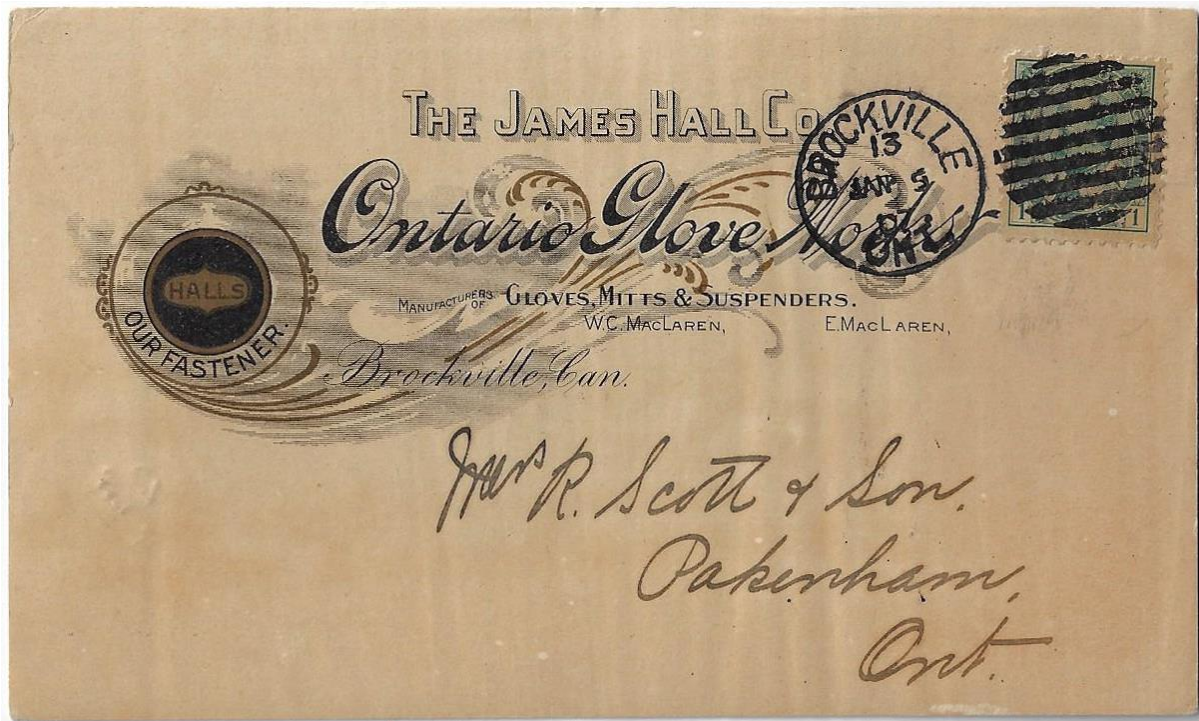 THE JAMES HALL CO
Ontario Glove Works
HALLS
OUR FASTENER.
MANUFACTURERS OF GLOVES, MITTS & SUSPENDERS.
W.C. MACLAREN, E. MACLAREN,
Brockville, Can.
BROCKVILLE
13
JAN 5
ONT
1 1
R. Scott & Son.
Pakenham,
Ont.